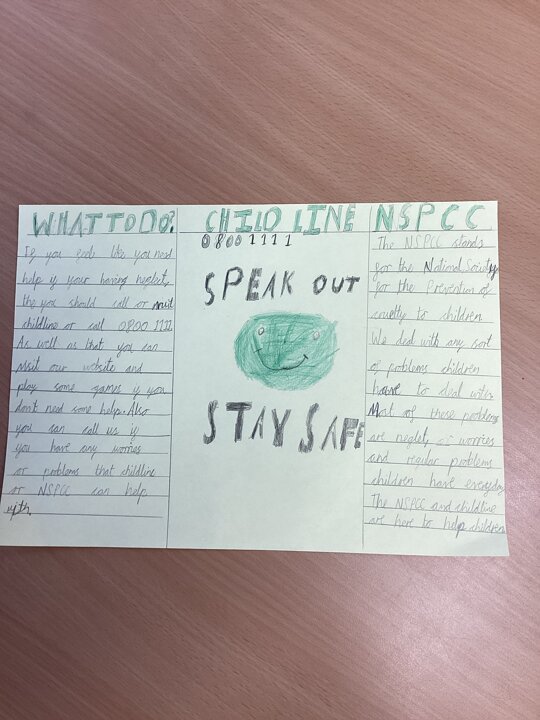 WHAT TO DO?
If you feel like you need
help if your having neglect,
the you should call or visit
childline or call 0800 1111.
As well as that you can
visit our website and
play some games if you
don't need some help. Also
you can call us if
you have any worries
or problems that childline
or NSPCC can help
with.
CHILD LINE
0800 1111
SPEAK OUT
STAY SAFE
NSPCC
The NSPCC stands
for the National Society
for the Prevention of
cruelty to children
We deal with any sort
of problems children
have to deal with.
Most of these problems
are neglect, or worries
and regular problems
children have everyday
The NSPCC and childline
are here to help children